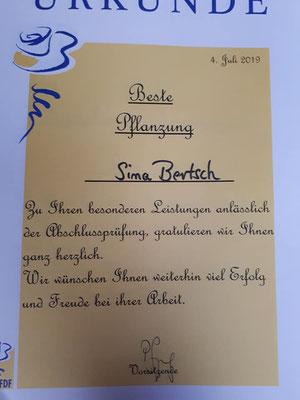 URKUNDE
4. Juli 2019
Beste
Pflanzung
Sina Bertsch
Zu Ihren besonderen Leistungen anlässlich
der Abschlussprüfung, gratulieren wir Ihnen
ganz herzlich.
Wir wünschen Ihnen weiterhin viel Erfolg
und Freude bei ihrer Arbeit.
Vorsitzende
FDF